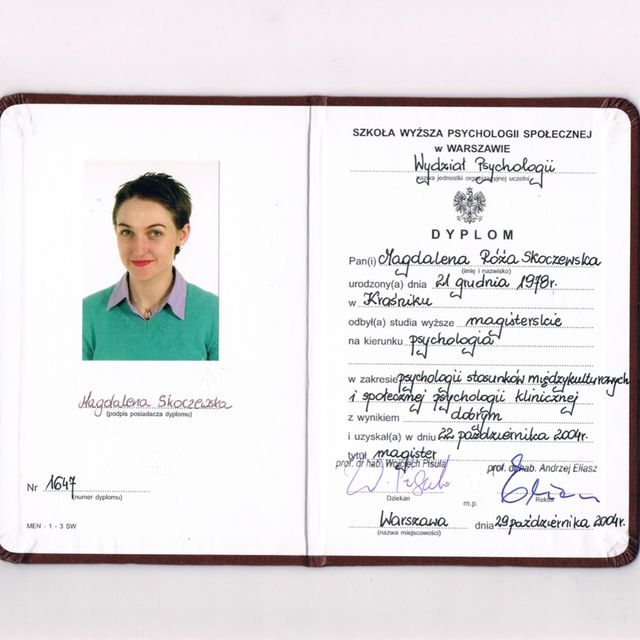 Magdalena Skoczewska
(podpis posiadacza dyplomu)
Nr 1647
(numer dyplomu)
MEN - 1 - 3 SW
SZKOŁA WYŻSZA PSYCHOLOGII SPOŁECZNEJ
w WARSZAWIE
Wydział Psychologii
nazwa jednostki organizacyjnej uczelni
DYPLOM
Pan(i) Magdalena Róża Skoczewska
(imię i nazwisko)
urodzony(a) dnia 21 grudnia 1978r.
w Kraśniku
odbył(a) studia wyższe magisterskie
na kierunku psychologia
w zakresie psychologii stosunków międzykulturowych
i społecznej psychologii klinicznej
z wynikiem dobrym
i uzyskał(a) w dniu 22 października 2004r.
tytuł magister
prof. dr hab. Wojciech Pisula prof. dr hab. Andrzej Eliasz
W. Pisula
Dziekan m.p. Rektor
Warszawa dnia 29 października 2004r.
(nazwa miejscowości)